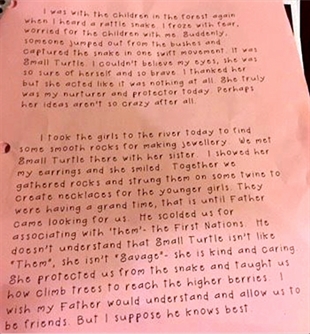 I was with the children in the forest again
when I heard a rattle snake. I froze with fear,
worried for the children with me. Suddenly,
someone jumped out from the bushes and
captured the snake in one swift movement. It was
Small Turtle. I couldn't believe my eyes, she was
so sure of herself and so brave. I thanked her
but she acted like it was nothing at all. She truly
was my nurturer and protector today. Perhaps
her ideas aren't so crazy after all.
I took the girls to the river today to find
some smooth rocks for making jewellery. We met
Small Turtle there with her sister. I showed her
my earrings and she smiled. Together we
gathered rocks and strung them on some twine to
create necklaces for the younger girls. They
were having a grand time, that is until Father
came looking for us. He scolded us for
associating with 'them'- the First Nations. He
doesn't understand that Small Turtle isn't like
"Them", she isn't "Savage"- she is kind and caring.
She protected us from the snake and taught us
how climb trees to reach the higher berries. I
wish my Father would understand and allow us to
be friends. But I suppose he knows best.